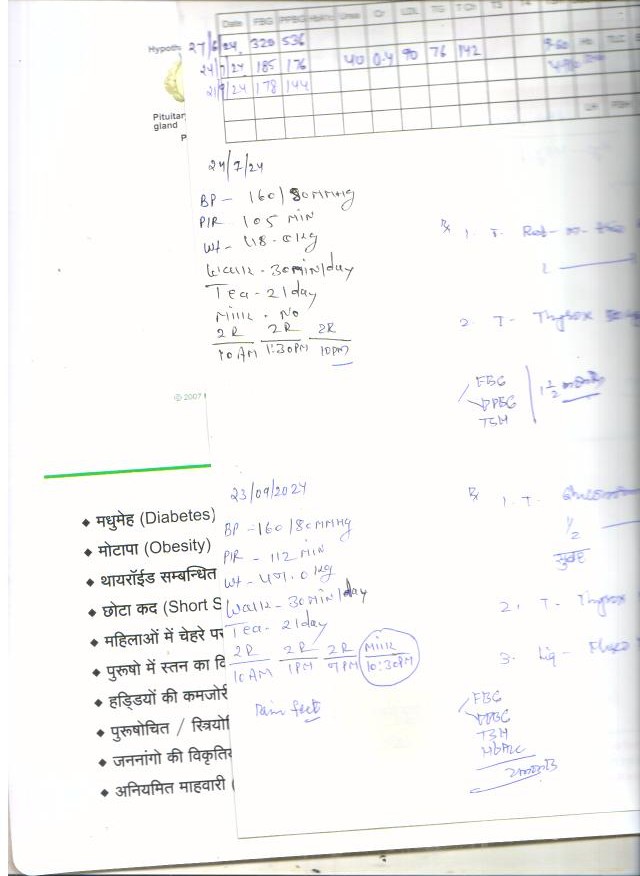 Date FBG PPBG HbA1c Urea Cr LDL TG T Ch T3
27/6/24 320 536
24/7/24 185 176 40 0.4 90 76 142
21/9/24 178 144
LH FSH
Hypoth
Pituitar
gland
P
24/7/24
BP - 160/80 MMHg
P/R 105 MIN
Wt - 48.0 Kg
Walk - 30 MIN/day
Tea - 2/day
Milk - No
2R 2R 2R
10 AM 1:30PM 10PM
Rx 1. T.
2. T- Thyrox
FBG
PPBG
TSH
1 1/2
© 2007
23/09/2024
BP - 160/80 MMHg
P/R - 112 MIN
Wt - 49.0 Kg
Walk - 30 MIN/day
Tea - 2/day
2R 2R 2R Milk
10 AM 1PM 9PM 10:30PM
Pain feet
Rx 1. T.
1/2
सुबह
2. T- Thyrox
3. Liq -
FBG
PPBG
TSH
HbA1c
♦ मधुमेह (Diabetes)
♦ मोटापा (Obesity)
♦ थायरॉईड सम्बन्धित
♦ छोटा कद (Short S
♦ महिलाओं में चेहरे पर
♦ पुरूषो में स्तन का वि
♦ हड्डियों की कमजोरी
♦ पुरूषोचित / स्त्रियो
♦ जननांगो की विकृति
♦ अनियमित माहवारी (